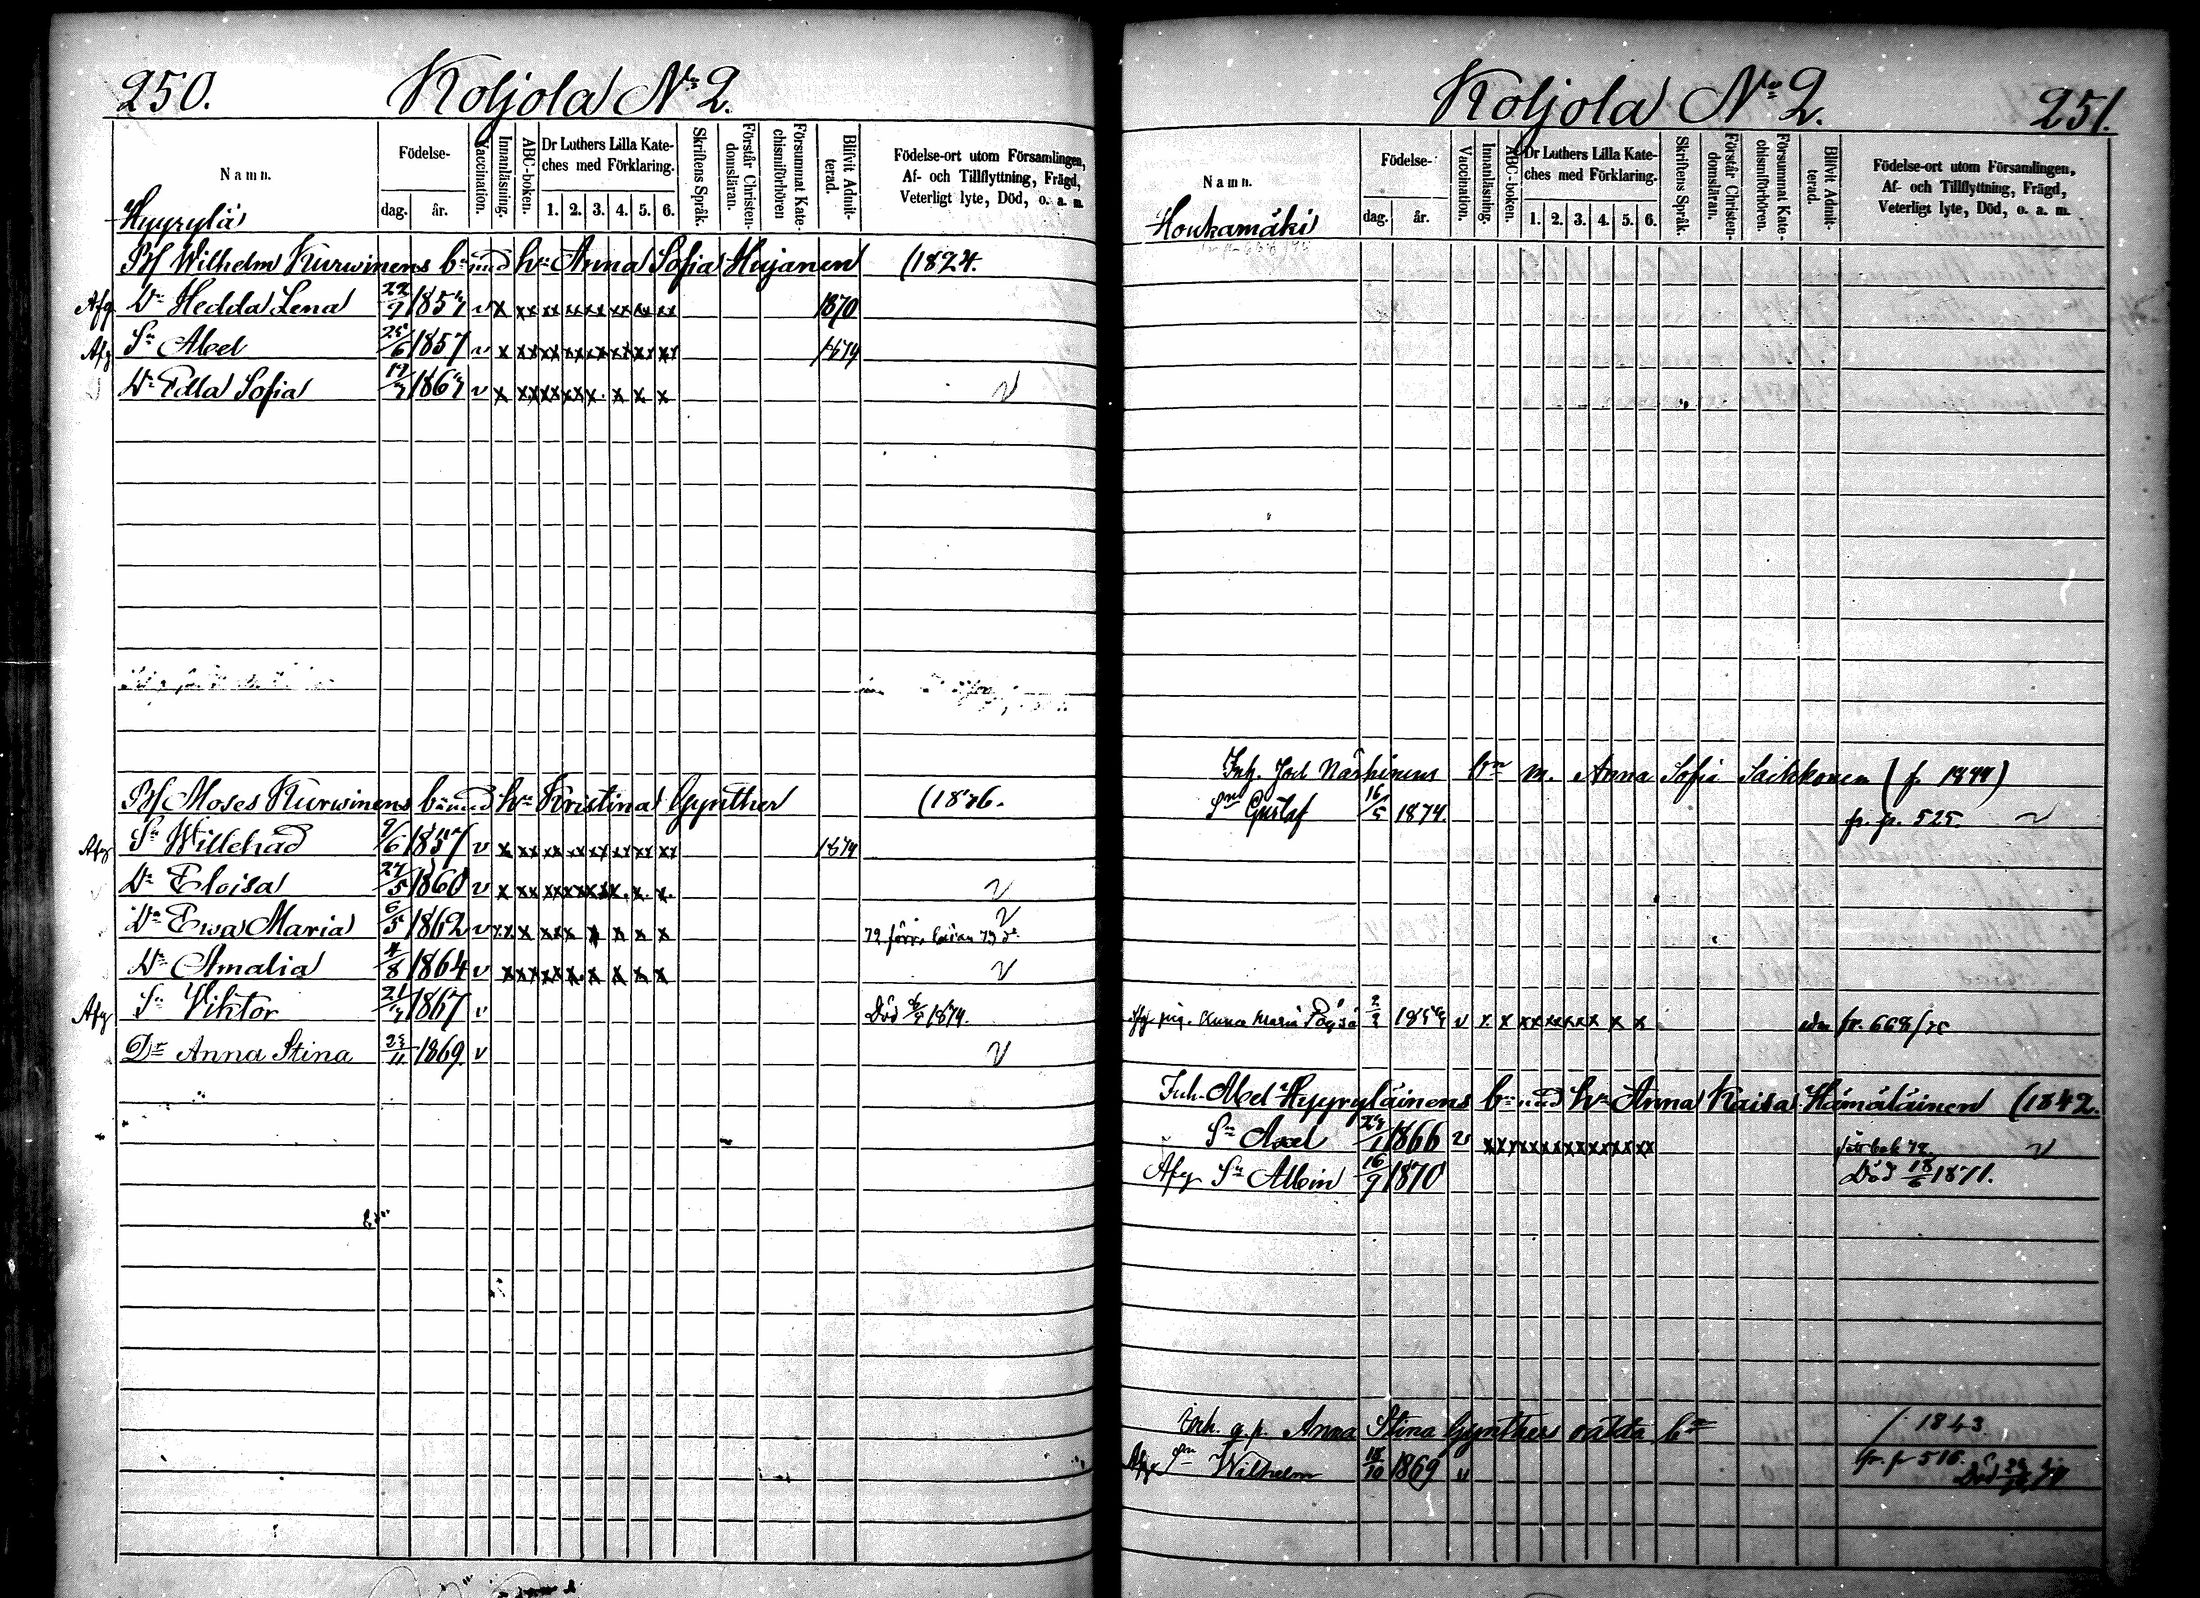 250. Koljola No 2.
Namn.
Födelse-
dag. år.
Vaccination.
Innanläsning.
ABC-boken.
Dr Luthers Lilla Kate-
ches med Förklaring.
1. 2. 3. 4. 5. 6.
Skriftens Språk.
Förstår Christen-
domsläran.
Försummat Kate-
chismiförhören
Blifvit Admit-
terad.
Födelse-ort utom Församlingen,
Af- och Tillflyttning, Frägd,
Veterligt lyte, Död, o. a. m.
Hyyrylä
Bf Wilhelm Kurwinens bn med hu Anna Sofia Hujanen (1824.
Afg Dr Hedda Lena 1854 v x xx xx xx xx xx xx xx 1870
Afg Sn Abel 25/6 1857 v x xx xx xx xx xx xx xx 1874
Dr Edla Sofia v x xx xx xx x. x x x v
Bf Moses Kurwinens bn med hu Kristina Gynther (1826.
Afg Sn Willehad 9/6 1857 v x xx xx xx xx xx xx xx 1874
Dr Eloisa 27/5 1860 v x xx xx xx xx x. x. x. v
Dr Ewa Maria 6/5 1862 v xx x xx xx x x x x v
Dr Amalia 4/8 1864 v x xx xx x. x x x x v
Afg Sn Viktor 1867 v Död 1874.
Dr Anna Stina 23/11 1869. v v
Koljola No 2. 251.
Namn.
Födelse-
dag. år.
Vaccination.
Innanläsning.
ABC-boken.
Dr Luthers Lilla Kate-
ches med Förklaring.
1. 2. 3. 4. 5. 6.
Skriftens Språk.
Förstår Christen-
domsläran.
Försummat Kate-
chismiförhören.
Blifvit Admit-
terad.
Födelse-ort utom Församlingen,
Af- och Tillflyttning, Frägd,
Veterligt lyte, Död, o. a. m.
Houkamäki
Inh. Joel Närhinens bn m. Anna Sofia Saikkonen (f. 1844)
Sn Gustaf 16/5 1874. fr. p. 525. v
Afg pig. Maria v x x xx xx xx x x fr. 668/75
Inh. Abel Hyyryläinens bn med hu Anna Kaisa Hämäläinen (1842.
Sn Axel 1866 v xx xx xx xx xx xx xx v
Afg Sn Albin 16/9 1870 Död 18/6 1871.
Inh. g.p. Anna Stina Gynthers oäkta bn / 1843.
Afg Sn Wilhelm 18/10 1869 v fr. p 516. Död